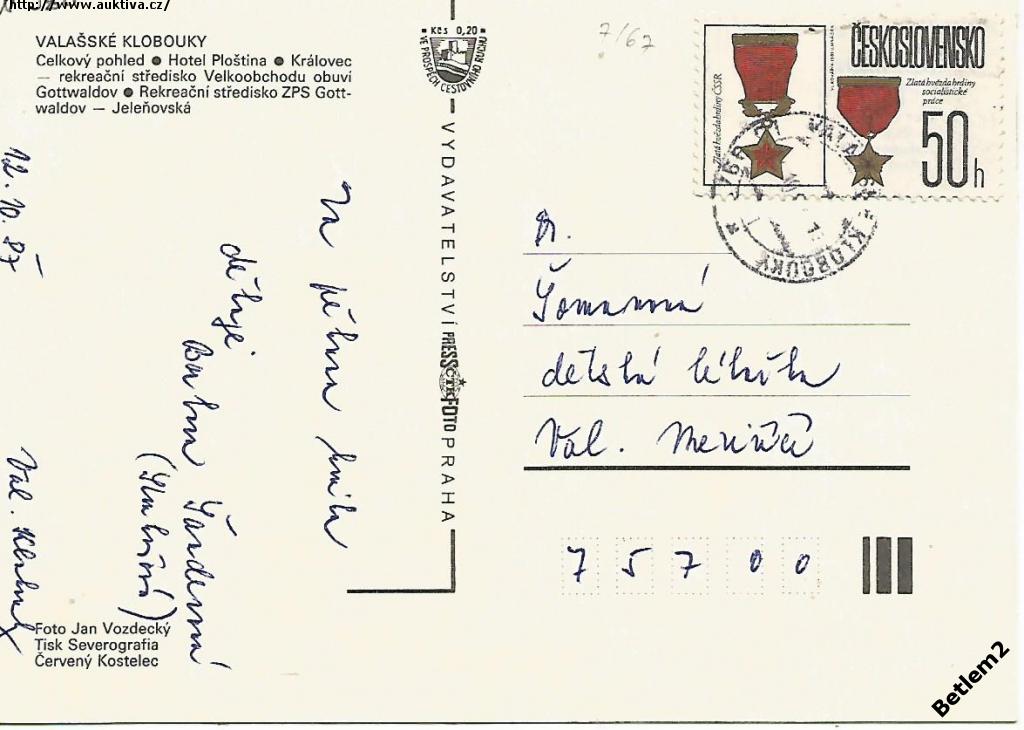 http://www.auktiva.cz/
VALAŠSKÉ KLOBOUKY
Celkový pohled ● Hotel Ploština ● Královec
— rekreační středisko Velkoobchodu obuví
Gottwaldov ● Rekreační středisko ZPS Gott-
waldov — Jeleňovská
Kčs 0,20
VE PROSPĚCH CESTOVNÍHO RUCHU
VYDAVATELSTVÍ PRESSFOTO PRAHA
ČTK
7/67
Zlatá hvězda hrdiny ČSSR
ČESKOSLOVENSKO
Zlatá hvězda hrdiny
socialistické
práce
50h
766
KLOBOUKY
12. 10. 87
Val.
Za pěknou
děkuje
Dr.
Tomanová
detská lékařka
Val. Meziříčí
75700
Foto Jan Vozdecký
Tisk Severografia
Červený Kostelec
Betlem2